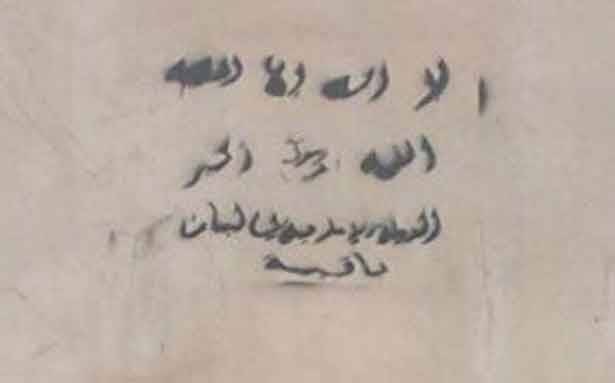 لا اله الا الله
الله اكبر
الدولة الاسلامية في لبنان
باقية